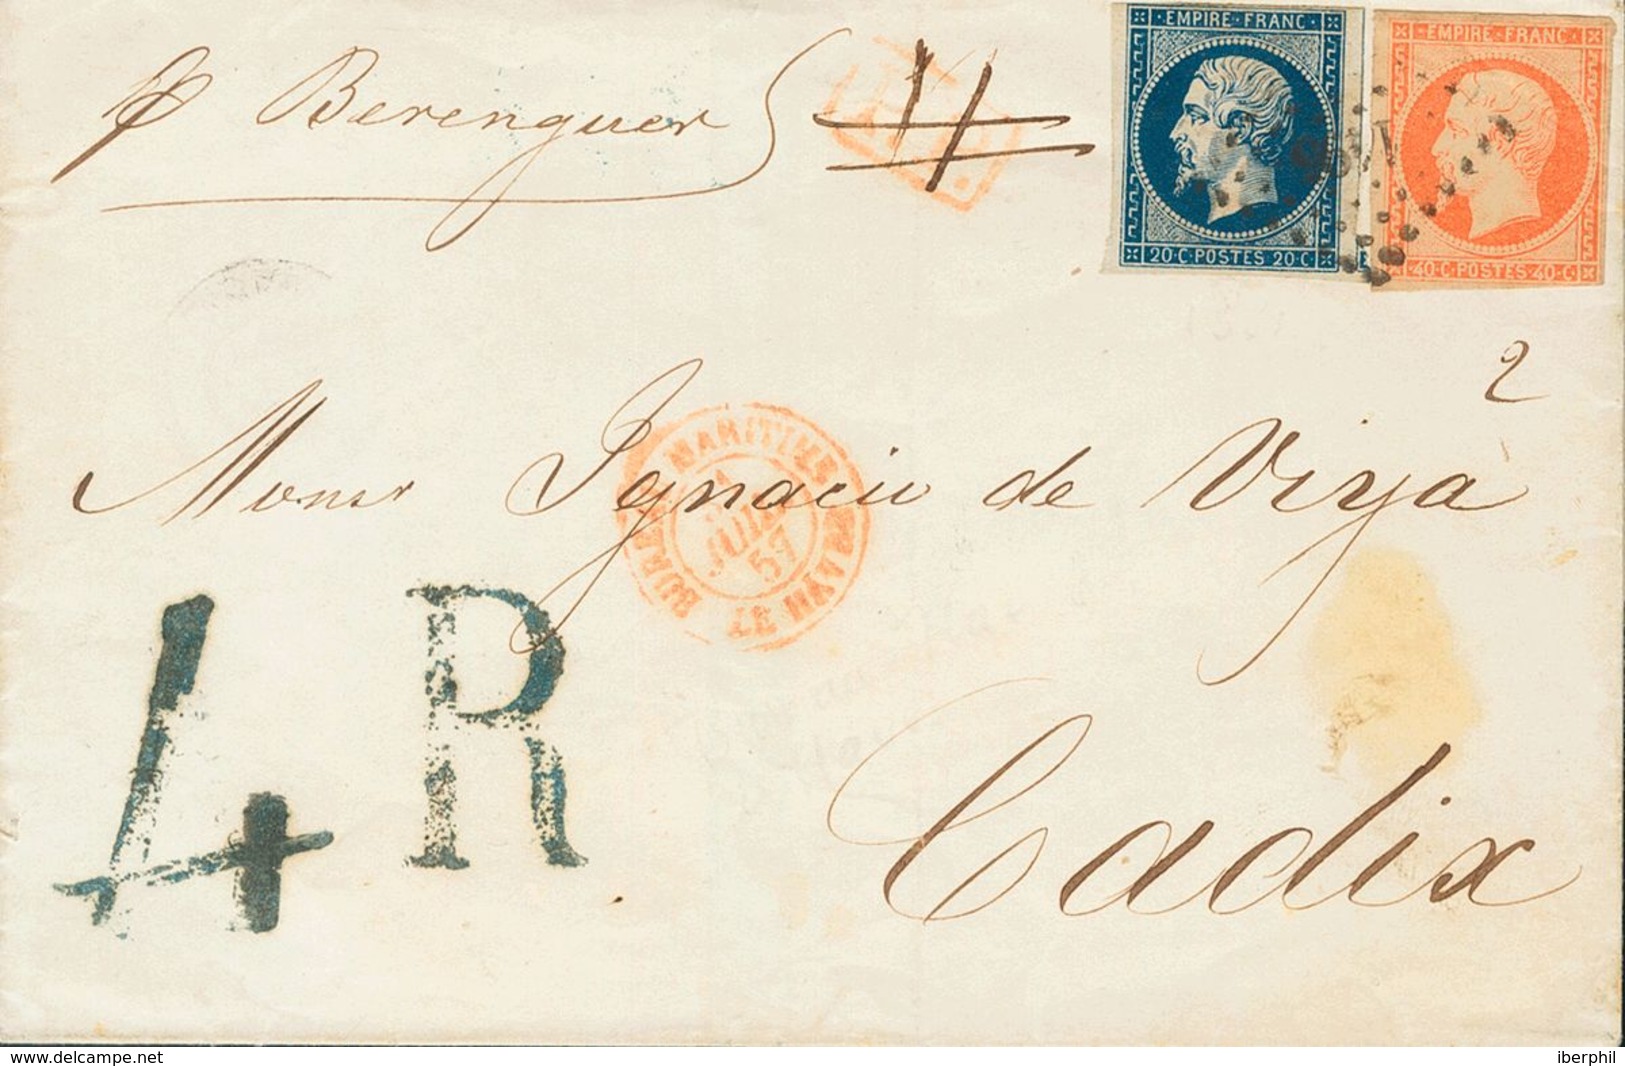 p Berenguer
P.P.
EMPIRE FRANC
20·C·POSTES 20·C
EMPIRE FRANC
40·C·POSTES 40·C
1495
2
Monsr Ignacio de Viya
BUREAU MARITIME
JUIL
57
LE HAVRE
4R
Cadix
www.delcampe.net
iberphil